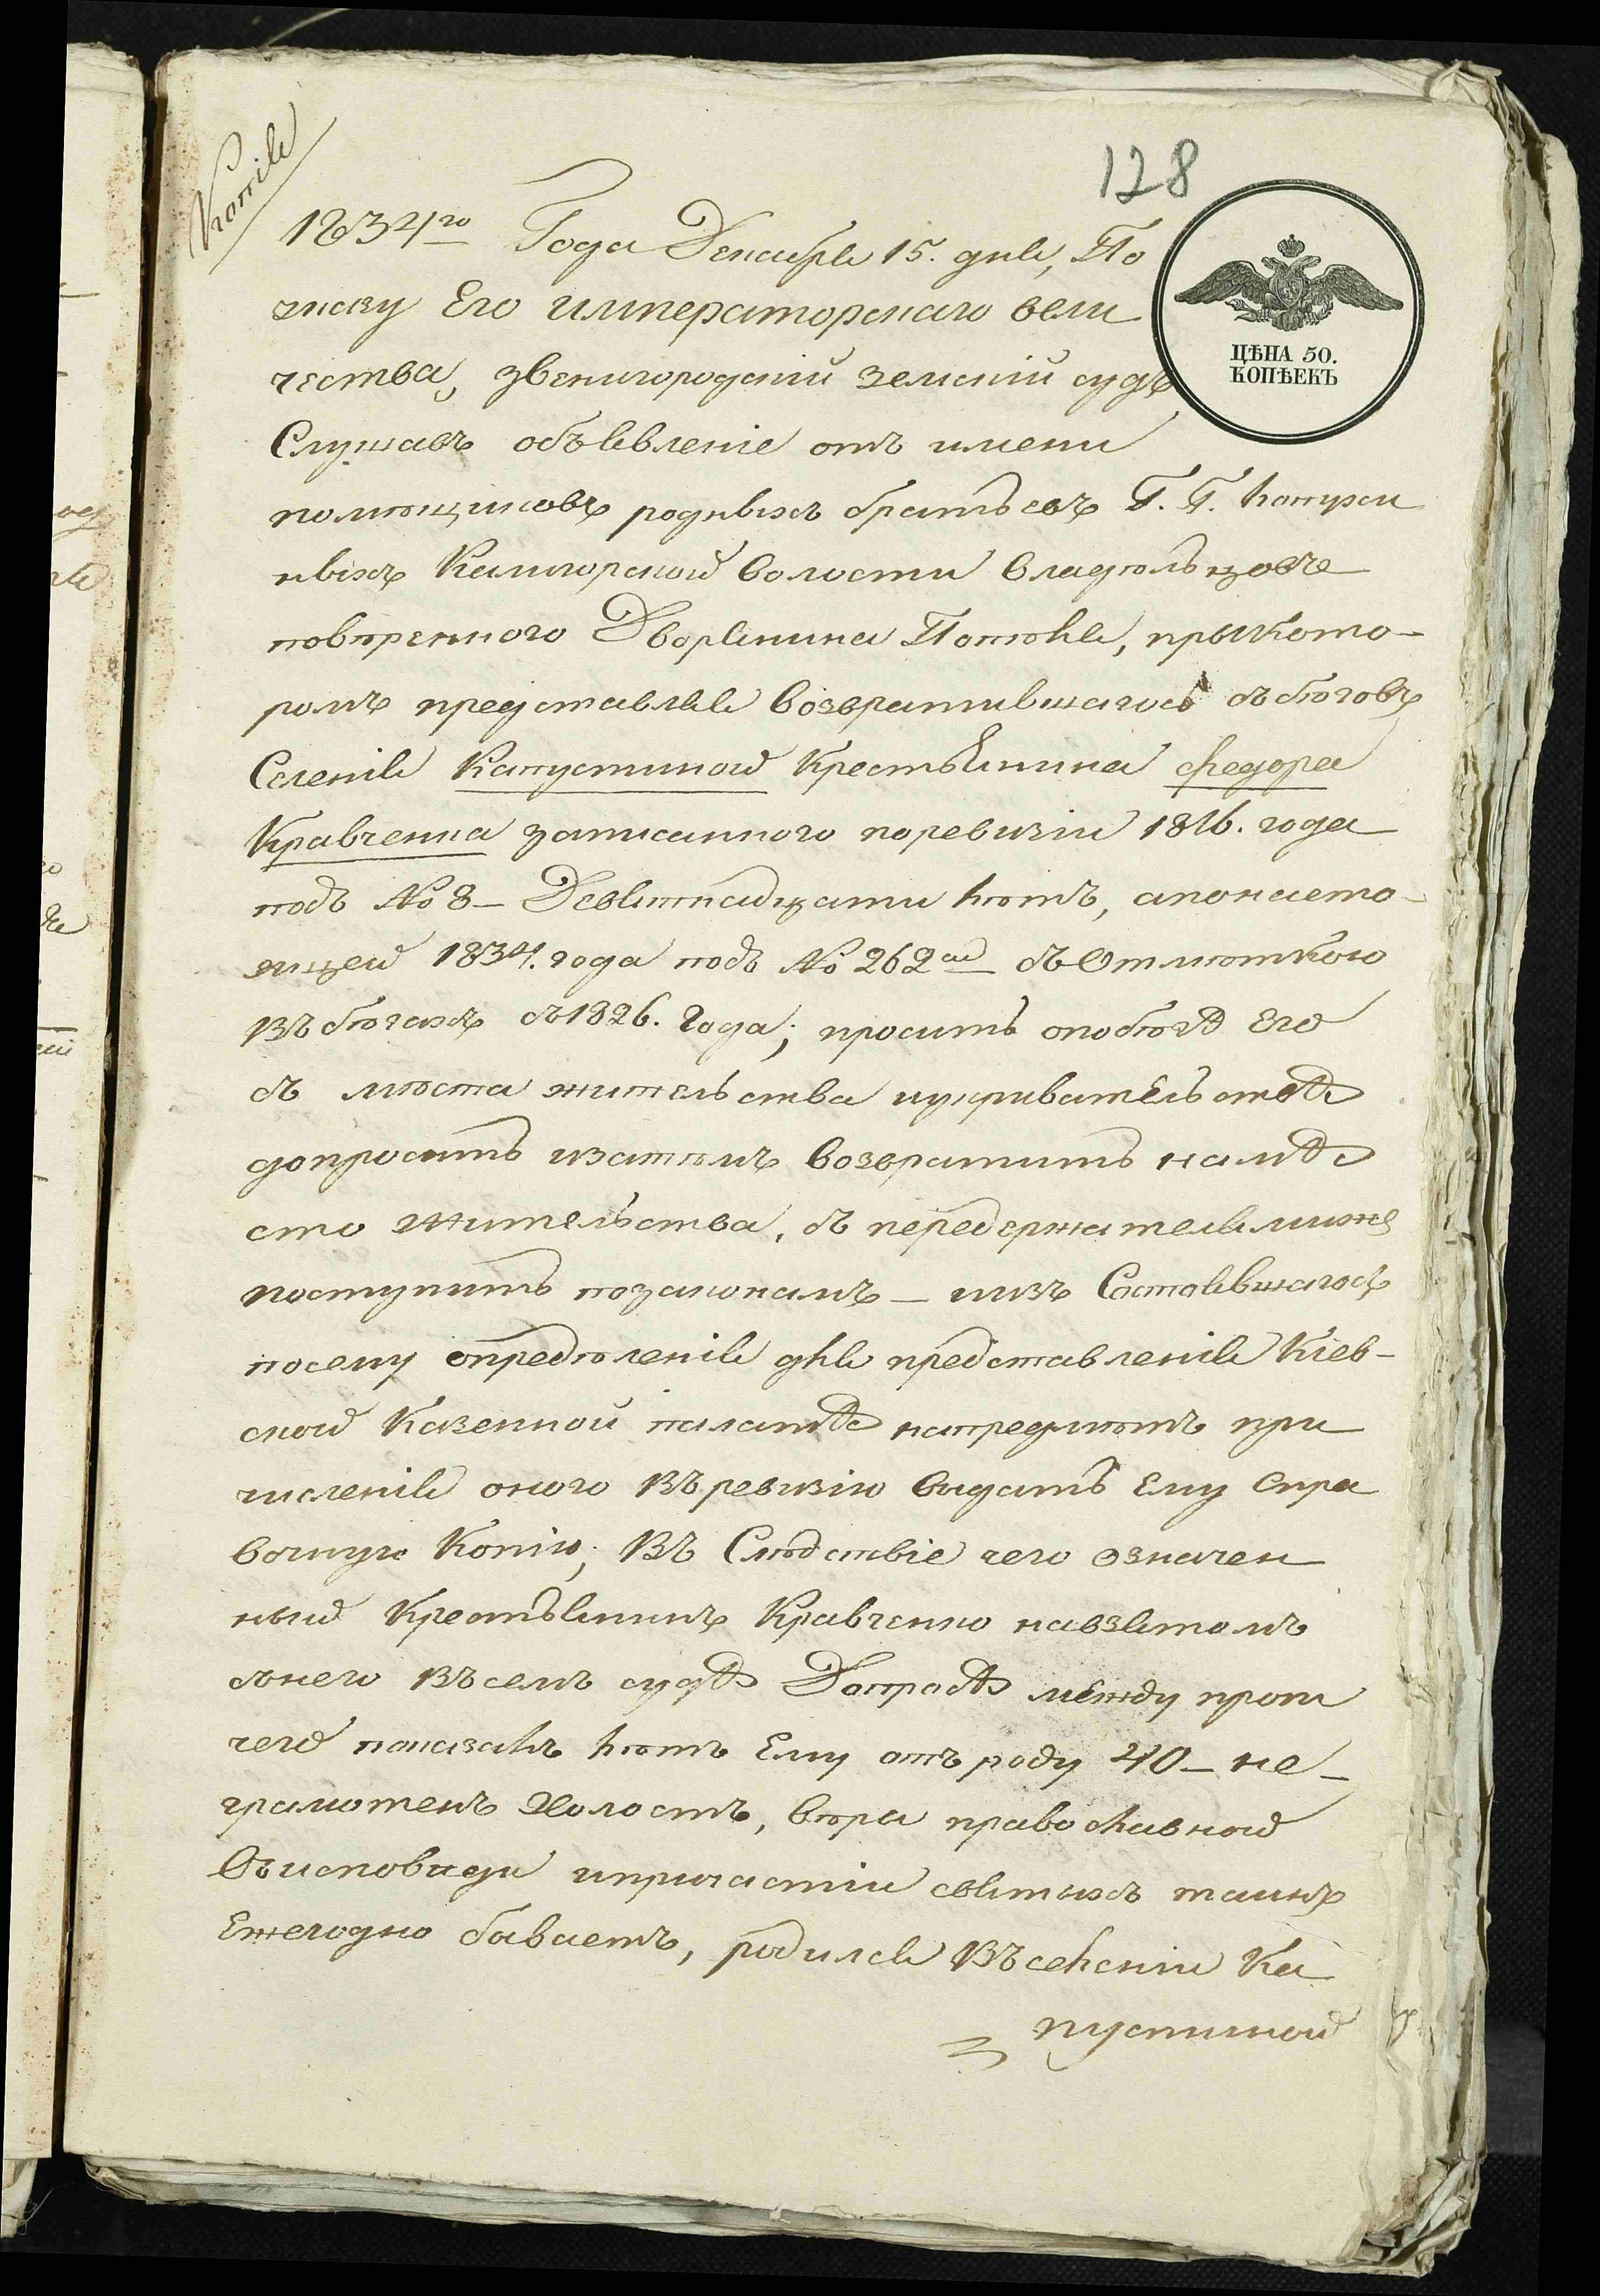 Копія
128
1834го Года Декабря 15. дня, По
указу Его императорскаго вели
чества, звенигородскій земскій судъ
ЦѢНА 50.
КОПѢЕКЪ
Слушавъ объявленіе отъ имени
помѣщиковъ родныхъ братьевъ Г. Г.
ныхъ Калигорской волости владѣльцовъ
повѣренного Дворянина, прыкото-
ромъ представляя возвратившагось сбѣговъ
Селенія Капустиной Крестьянина Федора
Кравченка записанного поревизіи 1816. года
подъ № 8 – Девятнадцати лѣтъ, апонасто-
ящей 1834. года подъ № 262ой съ Отмѣткою
въ бѣгахъ съ 1826. Года; просить опобѣгѣ Его
съ мѣста жительства иукривательствѣ
допросить изатѣмъ возвратить намѣ
сто жительства, съ передержателямиже
поступить позаконамъ – иизъ Состоявшагось
посему опредѣленія для представленія Кіев-
ской Казенной палатѣ напредмѣтъ при
численія оного въ ревизію видать Ему Спра
вочную Копію; въ Слѣдствіе чего означен
ный Крестьянинъ Кравченко навзятомъ
снего въ семъ судѣ Допросѣ между проти
чего показалъ лѣтъ Ему отъ роду 40 – не-
грамотенъ Холостъ, вѣры православной
Съисповиди ипричастіи святыхъ таинъ
Ежегодно бываетъ, родился въ селеніи Ка
пустиной